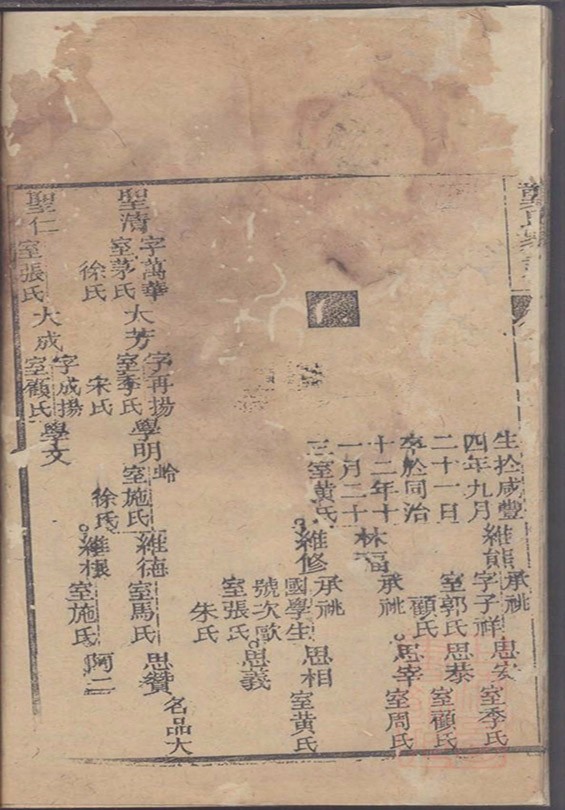 生於咸豐
四年九月
二十一日
卒於同治
十二年十
一月二十
三室黃氏
維能
承祧
字子祥
室郭氏
顧氏
思安
室季氏
思恭
室顧氏
思宰
室周氏
林福
承祧
維修
承祧
國學生
號次歐
室張氏
朱氏
思相
室黃氏
思義
聖濟
字萬華
室茅氏
徐氏
大芳
字再揚
室季氏
宋氏
學明
蛉
室施氏
徐氏
維德
室馬氏
思贊
名品大
維根
室施氏
阿二
聖仁
室張氏
大成
字成揚
室顧氏
學文